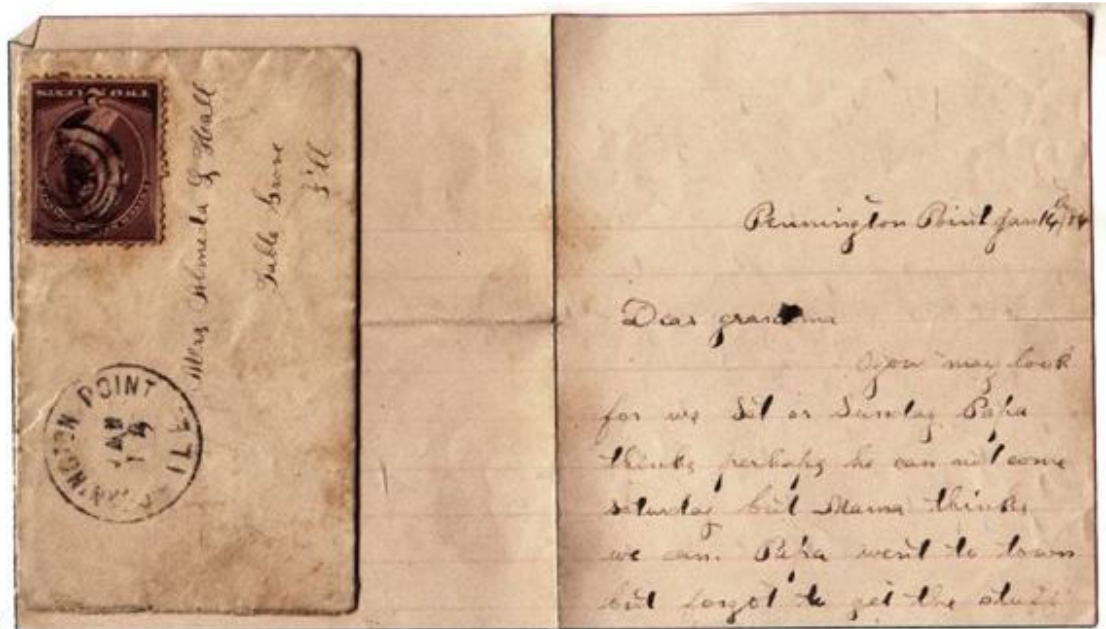 TWO CENTS
Mrs Almeda Heall
Table Grove
Ill
POINT
ILL
JAN
14
Pennington Point Jan 14
Dear grandma
you may look
for us Sat or Sunday Papa
thinks perhaps he can not come
saturday but Mama thinks
we can. Papa went to town
but forgot to get the